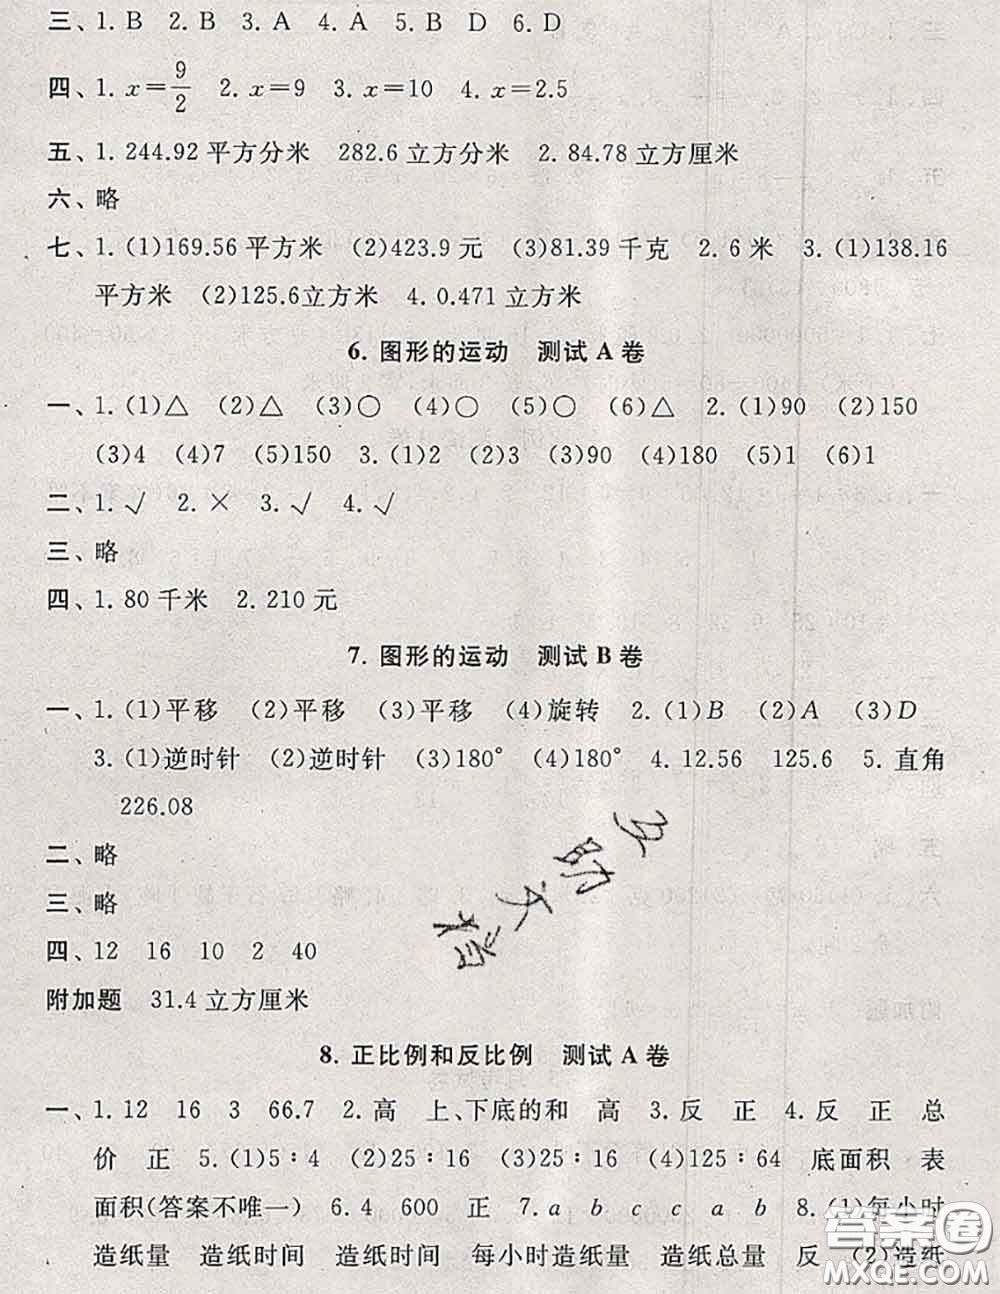 三、1. B  2. B  3. A  4. A  5. B  D  6. D
四、1. x=9/2  2. x=9  3. x=10  4. x=2.5
五、1. 244.92 平方分米  282.6 立方分米  2. 84.78 立方厘米
六、略
七、1. (1)169.56 平方米  (2)423.9 元  (3)81.39 千克  2. 6 米  3. (1)138.16
平方米  (2)125.6立方米  4. 0.471 立方米
6. 图形的运动  测试 A 卷
一、1. (1)△  (2)△  (3)○  (4)○  (5)○  (6)△  2. (1)90  (2)150
(3)4  (4)7  (5)150  3. (1)2  (2)3  (3)90  (4)180  (5)1  (6)1
二、1. √  2. ×  3. √  4. √
三、略
四、1. 80 千米  2. 210 元
7. 图形的运动  测试 B 卷
一、1. (1)平移  (2)平移  (3)平移  (4)旋转  2. (1)B  (2)A  (3)D
3. (1)逆时针  (2)逆时针  (3)180°  (4)180°  4. 12.56  125.6  5. 直角
226.08
二、略
三、略
四、12  16  10  2  40
附加题  31.4 立方厘米
8. 正比例和反比例  测试 A 卷
一、1. 12  16  3  66.7  2. 高  上、下底的和  高  3. 反  正  4. 反  正  总
价  正  5. (1)5∶4  (2)25∶16  (3)25∶16  (4)125∶64  底面积  表
面积(答案不唯一)  6. 4  600  正  7. a  b  c  c  a  b  8. (1)每小时
造纸量  造纸时间  造纸时间  每小时造纸量  造纸总量  反  (2)造纸
答案圈
MXQE.COM